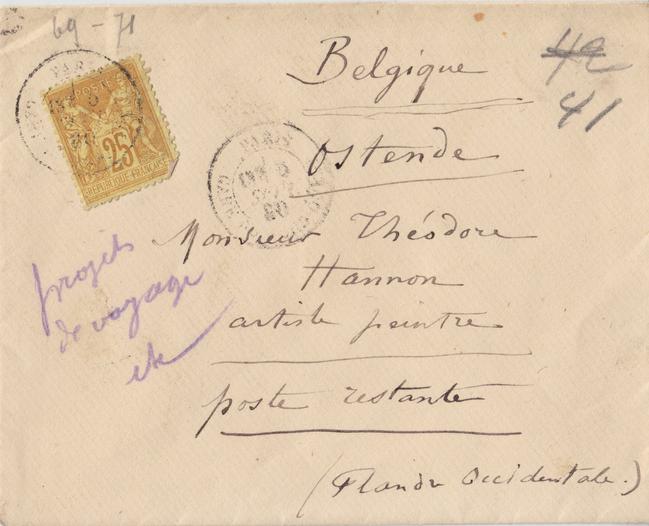 69 - 71
Belgique
42
41
PARIS
POSTES
25
REPUBLIQUE FRANÇAISE
PARIS
80
Ostende
Monsieur Théodore
Hannon
artiste peintre
poste restante
(Flandre Occidentale.)
projets
de voyage
etc